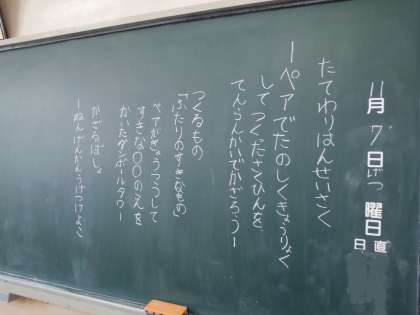 11月7日げつ曜日
日直
たてわりはんせいさく
ーペアでたのしくきょうりょく
してつくったさくひんを
てんらんかいでかざろうー
つくるもの
「ふたりのすきなもの」
ペアがきょうつうして
すきな〇〇のえを
かいたダンボールタワー
かざるばしょ